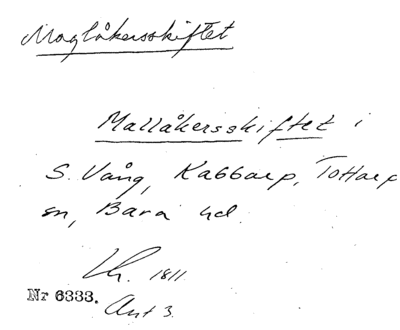 Maglåkersskiftet
Mallåkersskiftet i
S. Vång, Kabbarp, Tottarp
sn, Bara hd.
Lh. 1811.
Nr 6333.
Ant 3.